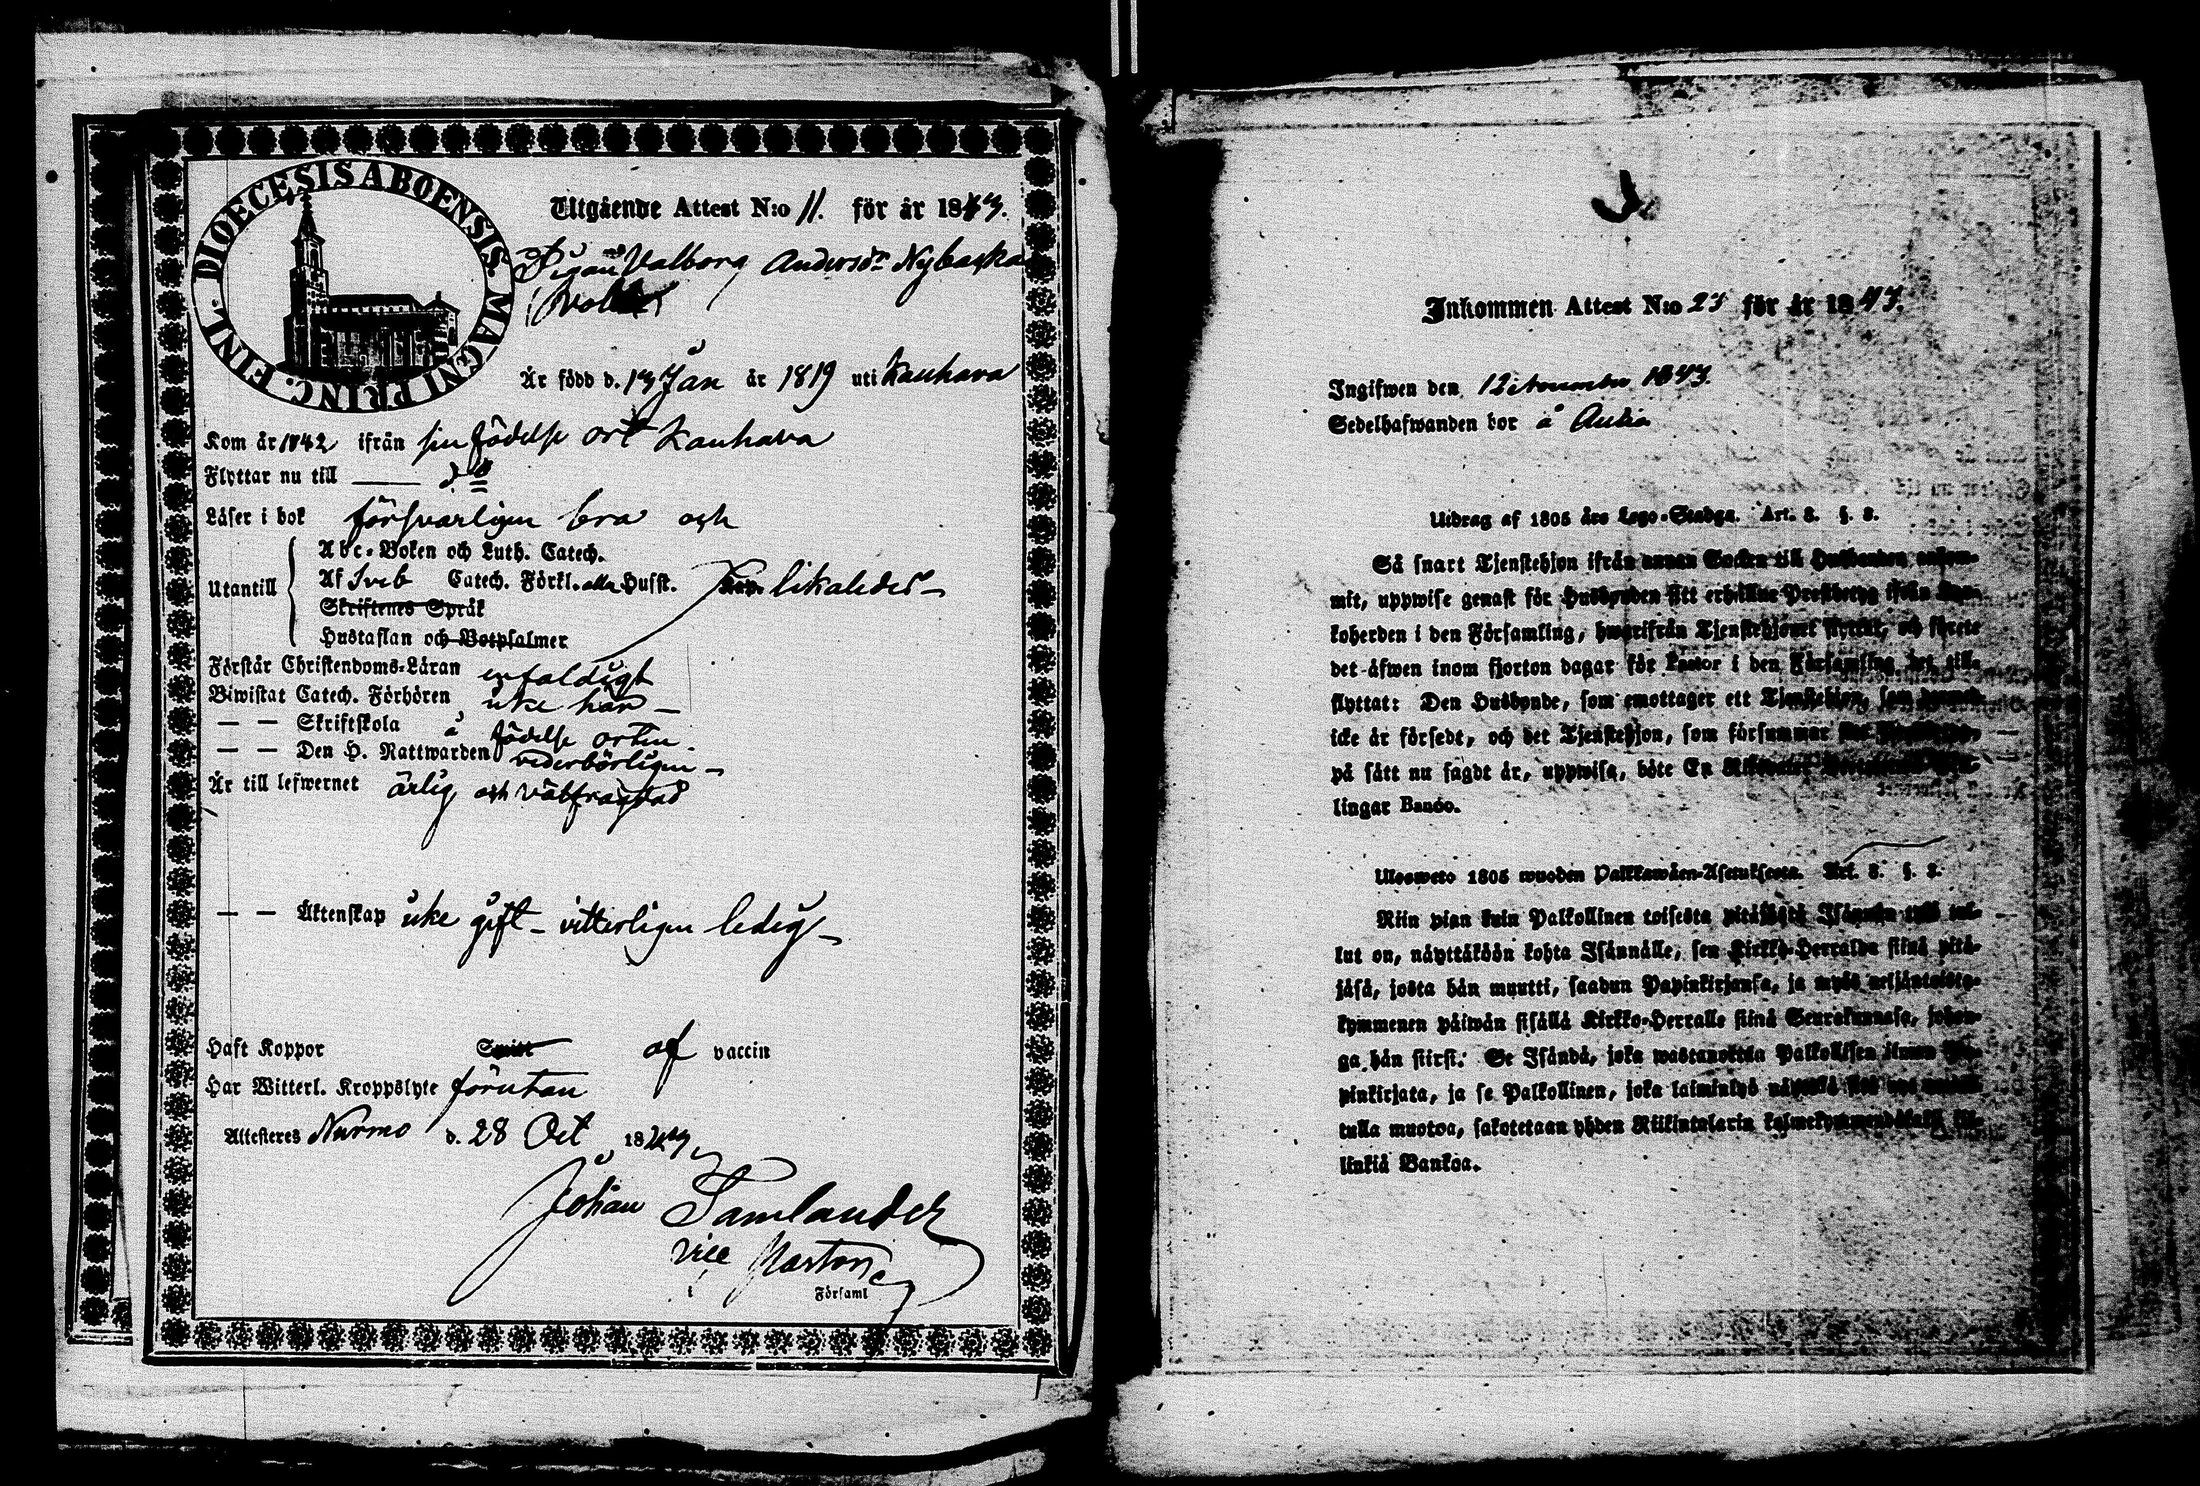 DIOECESIS ABOENSIS. MAGNI PRINC. FINL.
Utgående Attest N:o 11. för år 1843.
Pigan Valborg Andersdr Nybacka
Är född d. 13 Jan år 1819 uti Kauhava
Kom år 1842 ifrån sin födelse ort Kauhava
Flyttar nu till d:o
Läser i bok försvarligen bra och
Abc-Boken och Luth. Catech.
Utantill Af Sveb Catech. Förkl. alla Hufst. likaledes
Skriftenes Språk
Hustaflan och Botpsalmer
Förstår Christendoms-Läran enfaldigt
Biwistat Catech. Förhören icke här
— — Skriftskola å födelse orten
— — Den H. Nattwarden vederbörligen
Är till lefwernet ärlig och välfrägdad
— — Äktenskap icke gift - vitterligen ledig
Haft Koppor Smitt af vaccin
Har Witterl. Kroppslyte förutan
Attesteres Nurmo d. 28 Oct 1843
Johan Samlander
vice Pastor
i Församl
Inkommen Attest N:o 23 för år 1843.
Ingifwen den 12 November 1843.
Sedelhafwanden bor å
Utdrag af 1805 års Lego-Stadga. Art. 8. §. 8.
Så snart Tjenstehjon ifrån annan Socken till Husbonden ankom-
mit, uppwise genast för Husbonden sitt erhållne Prestbetyg ifrån Kyr-
koherden i den Församling, hwarifrån Tjenstehjonet flyttat, och förete
det äfwen inom fjorton dagar för Pastor i den Församling det till-
flyttat: Den Husbonde, som emottager ett Tjenstehjon, som
icke är försedt, och det Tjenstehjon, som försummar
på sätt nu sagdt är, uppwisa, böte En Riksdaler
lingar Banco.
Ulosweto 1805 wuoden Palkkawäen-Asetuksesta. Art. 8. §. 8.
Niin pian kuin Palkollinen toisesta pitäjästä Isännän tykö tul-
lut on, näyttäköön kohta Isännälle, sen Kirkko-Herralda siinä pitä-
jäsä, josta hän muutti, saadun Papinkirjansa, ja myös neljäntoista-
kymmenen päiwän sisällä Kirkko-Herralle siinä Seurakunnasa, johon-
ga hän siirsi: Se Isändä, joka wastanottaa Palkollisen ilman Pa-
pinkirjata, ja se Palkollinen, joka laiminlyö
tulla muotoa, sakotetaan yhden Riikintalarin kolmekymmendäkaksi kil-
linkiä Bankoa.